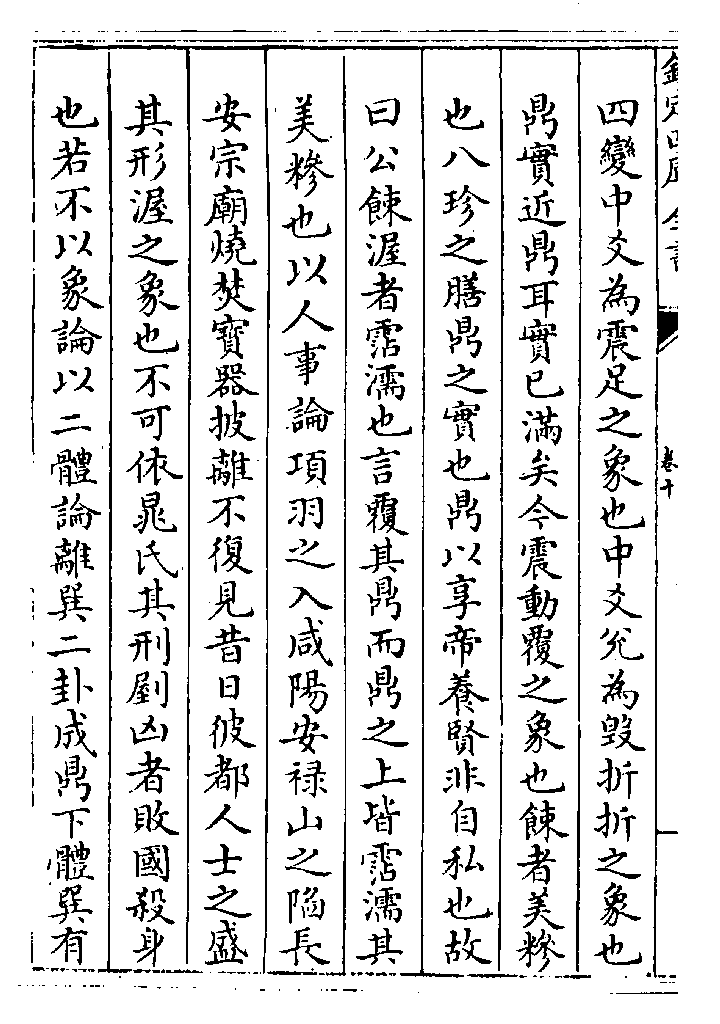 欽定四庫全書
卷十
四變中爻為震足之象也中爻兊為毀折折之象也
鼎實近鼎耳實已滿矣今震動覆之象也餗者美糝
也八珍之膳鼎之實也鼎以享帝養賢非自私也故
曰公餗渥者霑濡也言覆其鼎而鼎之上皆霑濡其
美糝也以人事論項羽之入咸陽安禄山之陷長
安宗廟燒焚寳器披離不復見昔日彼都人士之盛
其形渥之象也不可依晁氏其刑剭凶者敗國殺身
也若不以象論以二體論離巽二卦成鼎下體巽有